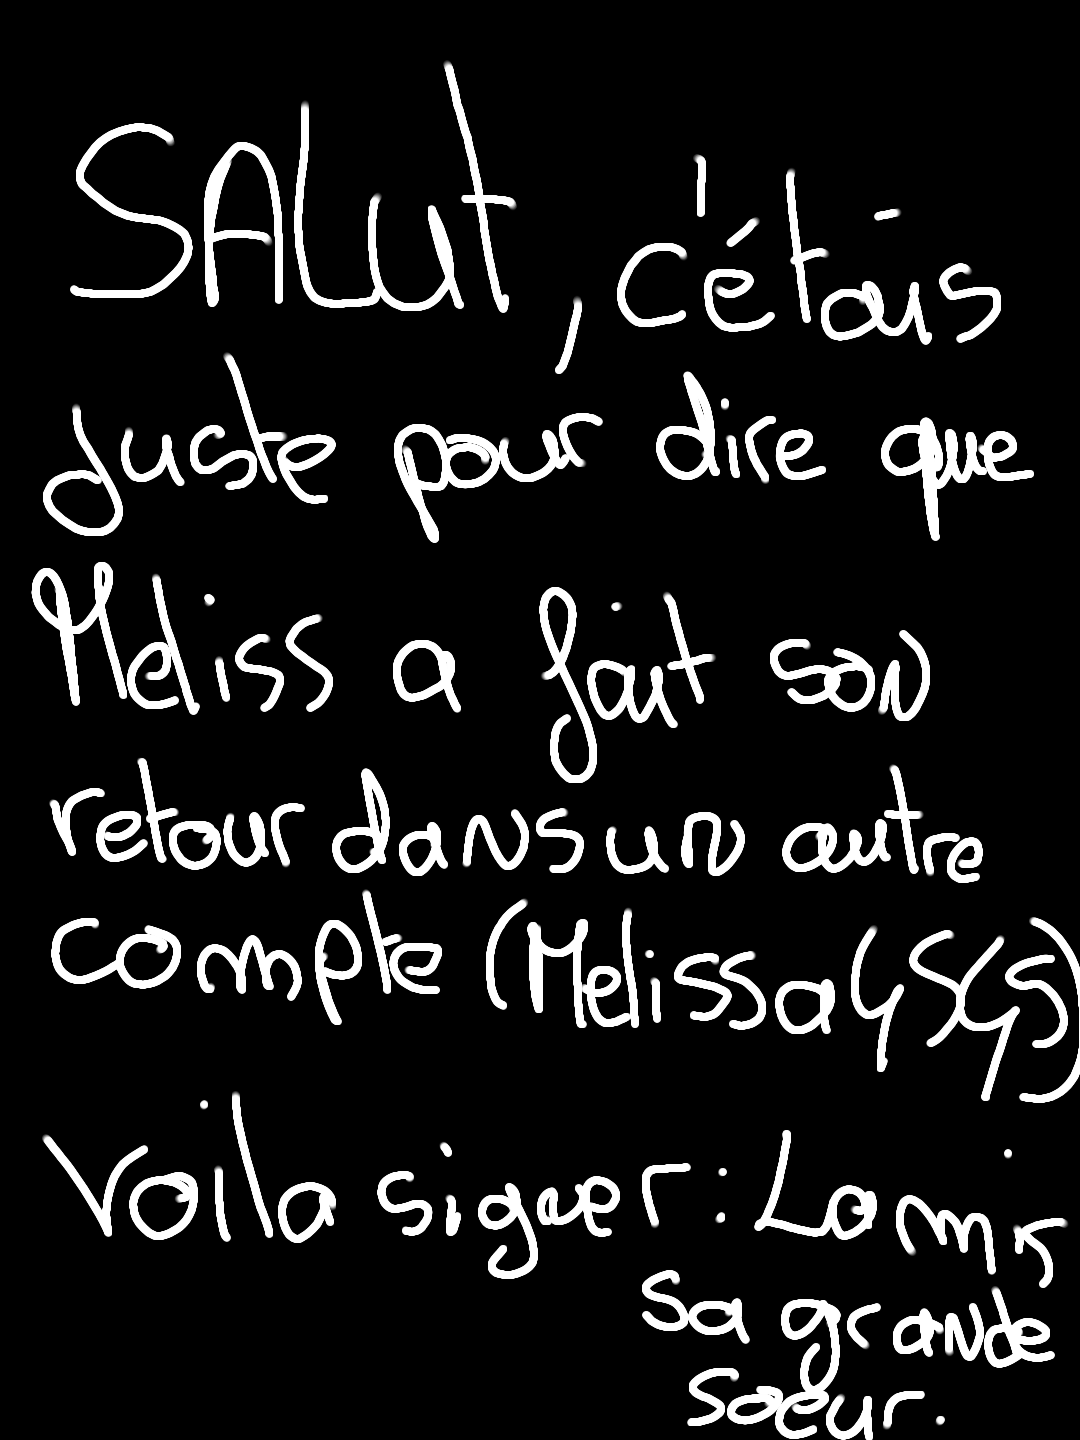 SALut, c'étais
juste pour dire que
Meliss a fait son
retour dans un autre
compte (Melissa4545)
Voila signer : Lamis
sa grande
soeur.